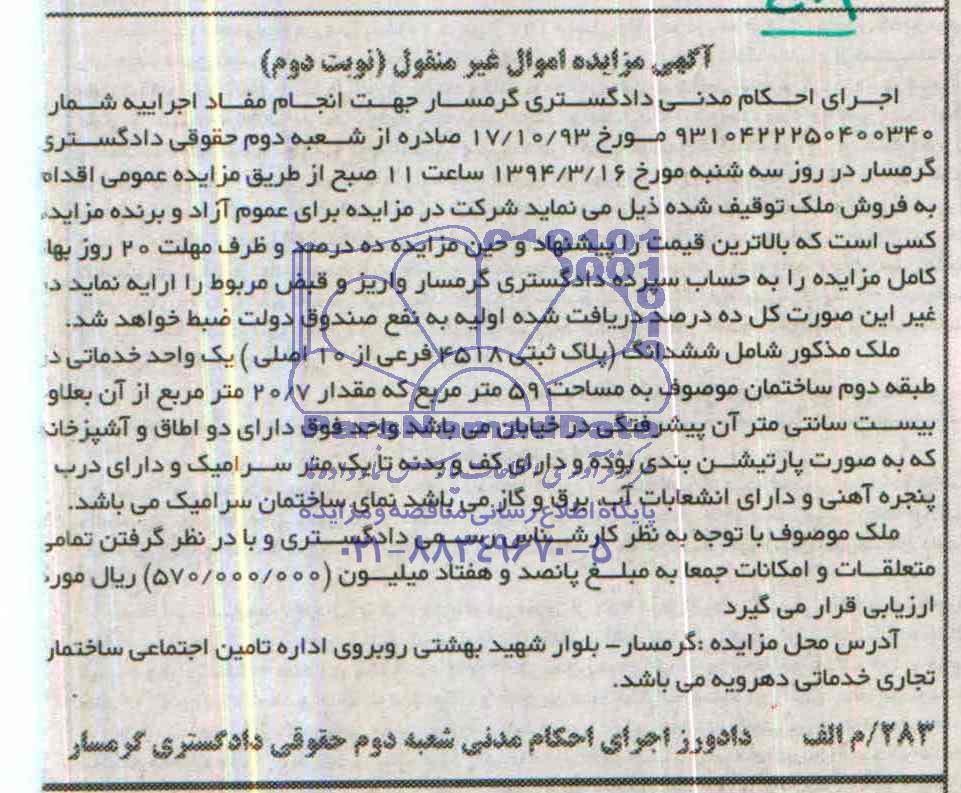 آگهی مزایده اموال غیر منقول (نوبت دوم)
اجرای احکام مدنی دادگستری گرمسار جهت انجام مفاد اجراییه شمار
۹۳۱۰۴۲۲۲۵۰۴۰۰۳۴۰ مورخ ۱۷/۱۰/۹۳ صادره از شعبه دوم حقوقی دادگستری
گرمسار در روز سه شنبه مورخ ۱۳۹۴/۳/۱۶ ساعت ۱۱ صبح از طریق مزایده عمومی اقدام
به فروش ملک توقیف شده ذیل می نماید شرکت در مزایده برای عموم آزاد و برنده مزایده
کسی است که بالاترین قیمت را پیشنهاد و حین مزایده ده درصد و ظرف مهلت ۲۰ روز بها
کامل مزایده را به حساب سپرده دادگستری گرمسار واریز و قبض مربوط را ارایه نماید در
غیر این صورت کل ده درصد دریافت شده اولیه به نفع صندوق دولت ضبط خواهد شد.
ملک مذکور شامل ششدانگ (پلاک ثبتی ۴۵۱۸ فرعی از ۱۰ اصلی ) یک واحد خدماتی در
طبقه دوم ساختمان موصوف به مساحت ۵۹ متر مربع که مقدار ۲۰/۷ متر مربع از آن بعلاو
بیست سانتی متر آن پیشرفتگی در خیابان می باشد واحد فوق دارای دو اطاق و آشپزخانه
که به صورت پارتیشن بندی بوده و دارای کف و بدنه تا یک متر سرامیک و دارای درب
پنجره آهنی و دارای انشعابات آب، برق و گاز می باشد نمای ساختمان سرامیک می باشد.
ملک موصوف با توجه به نظر کارشناس رسمی دادگستری و با در نظر گرفتن تمامی
متعلقات و امکانات جمعا به مبلغ پانصد و هفتاد میلیون (۵۷۰/۰۰۰/۰۰۰) ریال مورد
ارزیابی قرار می گیرد
آدرس محل مزایده :گرمسار– بلوار شهید بهشتی روبروی اداره تامین اجتماعی ساختمان
تجاری خدماتی دهرویه می باشد.
۲۸۳/م الف دادورز اجرای احکام مدنی شعبه دوم حقوقی دادگستری گرمسار
ParsNamadData
پایگاه اطلاع رسانی مناقصه و مزایده
۰۲۱-۸۸۳۴۹۶۷۰-۵